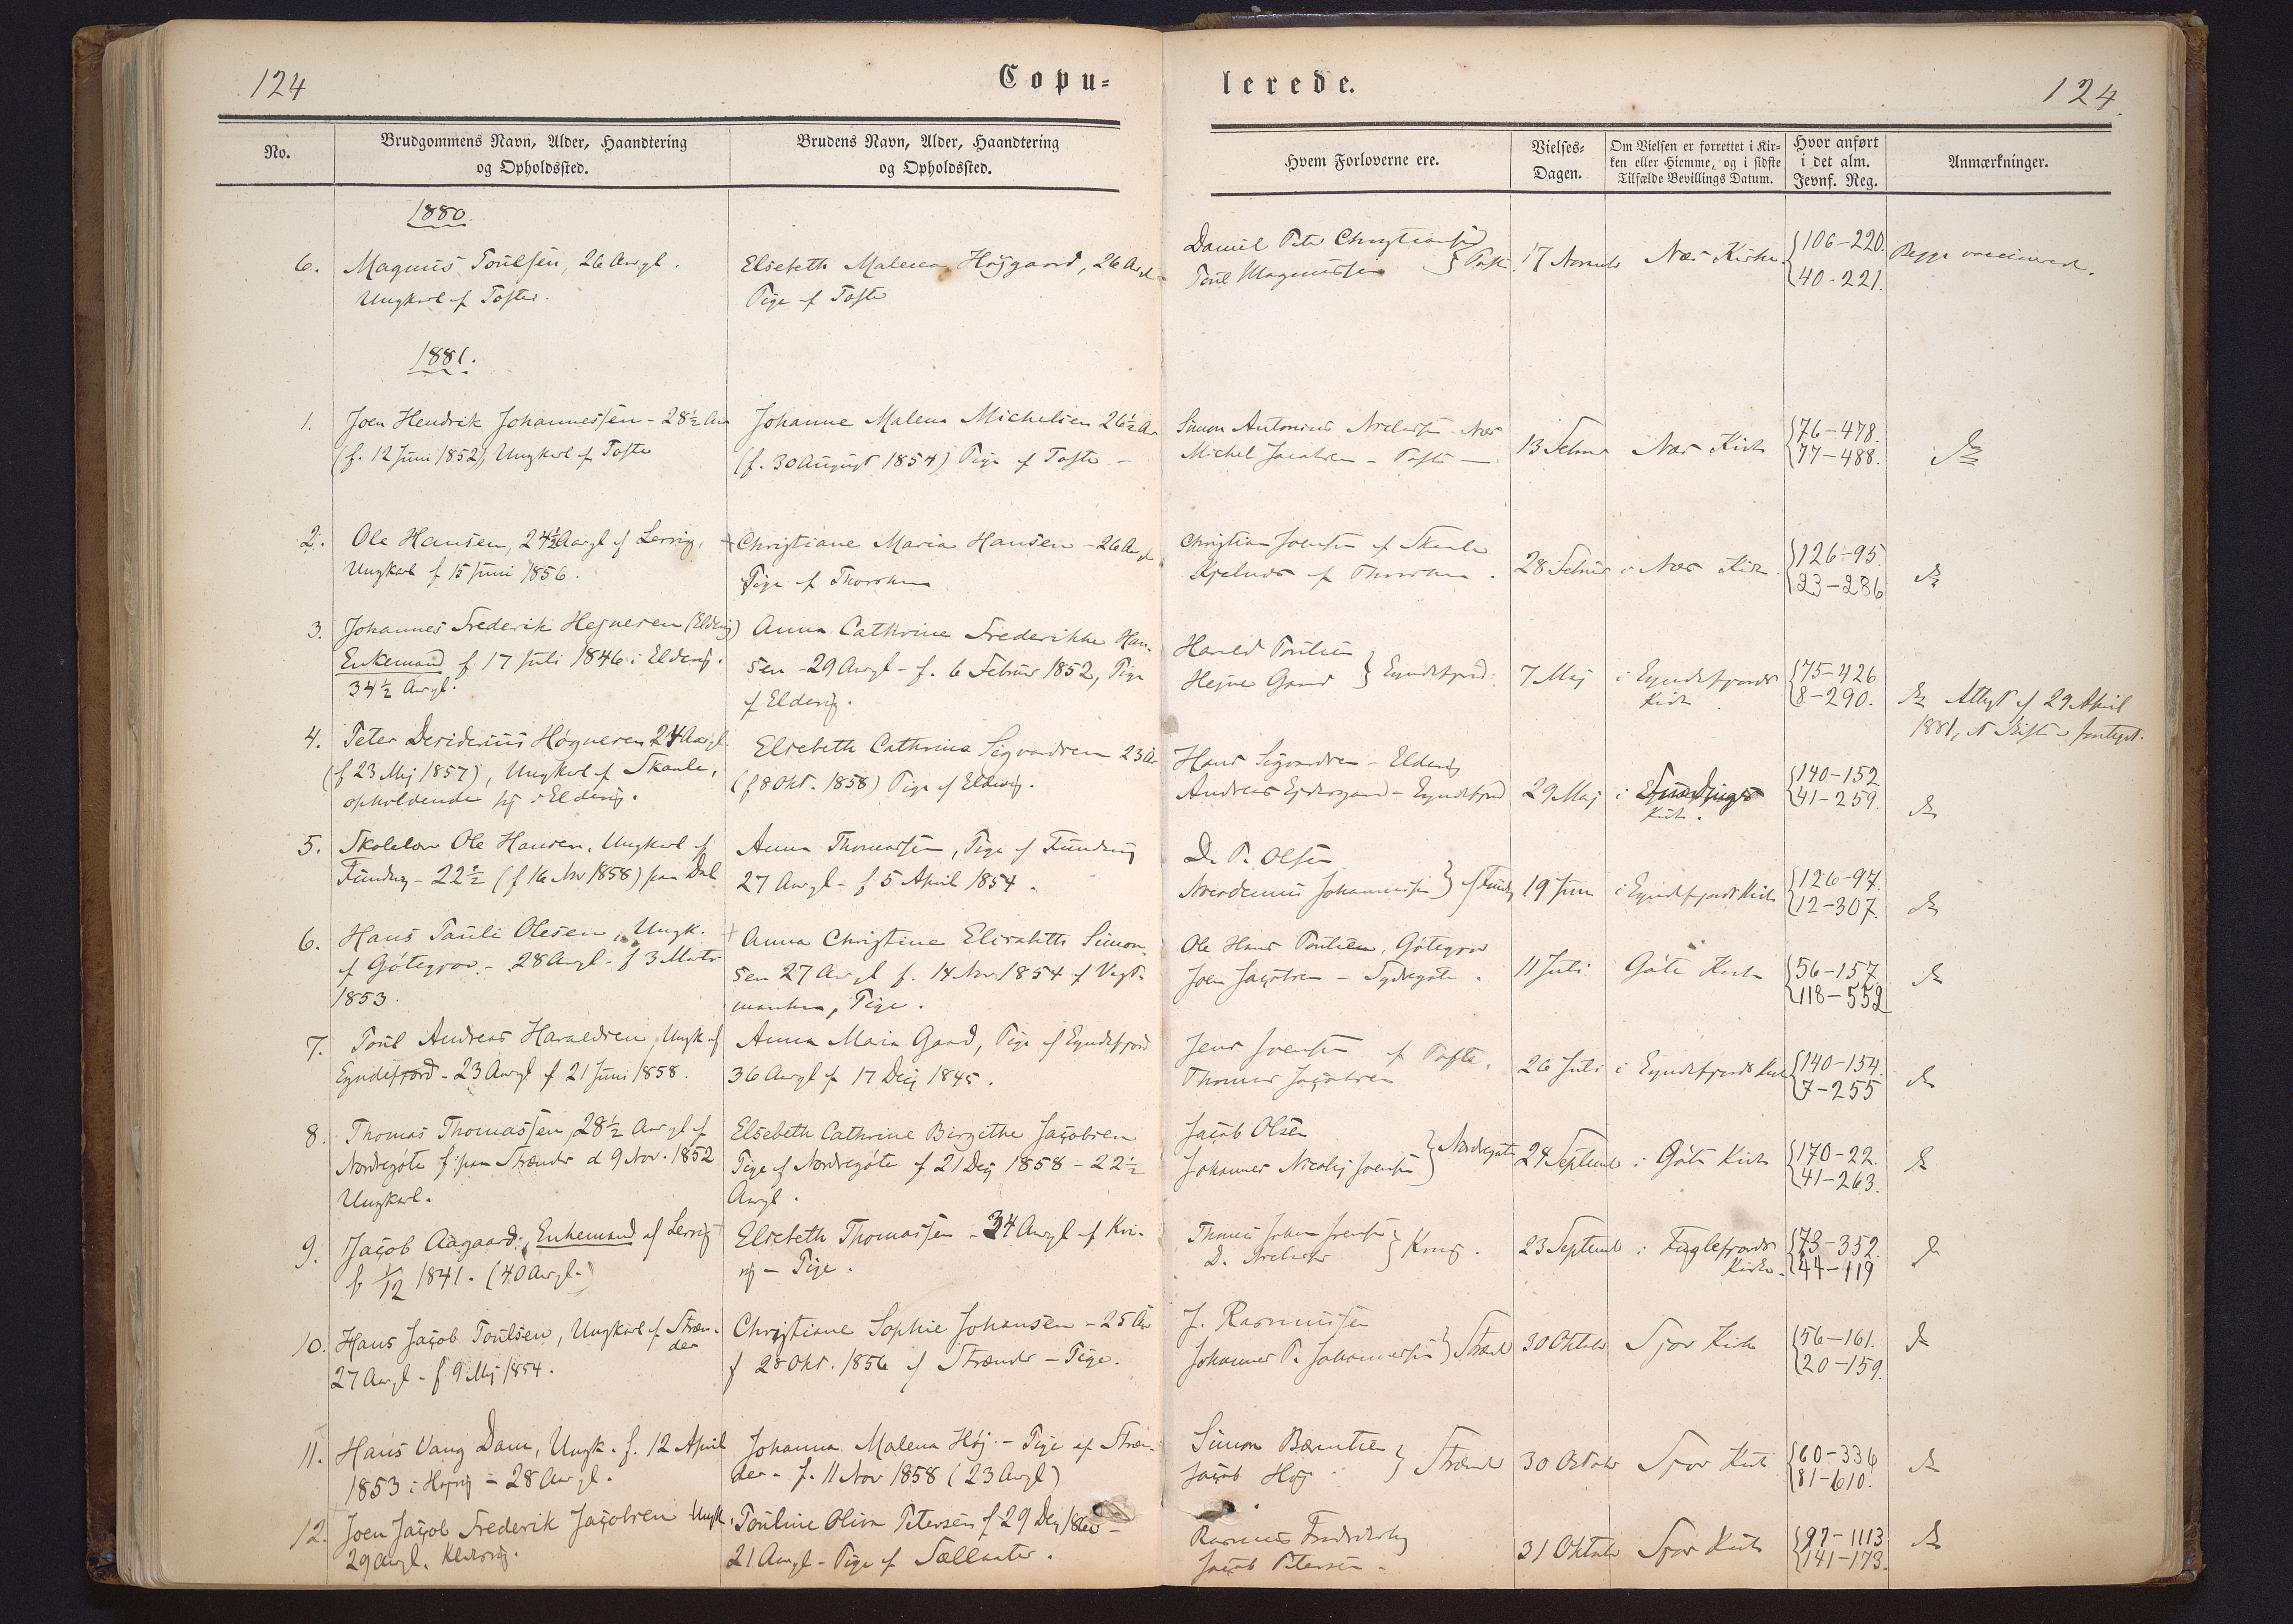 124
Copu=
lerede.
124.
No.
Brudgommens Navn, Alder, Haandtering
og Opholdssted.
Brudens Navn, Alder, Haandtering
og Opholdssted.
Hvem Forloverne ere.
Vielses-
Dagen.
Om Vielsen er forrettet i Kir-
ken eller Hiemme, og i sidste
Tilfælde Bevillings Datum.
Hvor anført
i det alm.
Jevnf. Reg.
Anmærkninger.
1880.
6. Magnus Poulsen, 26 Aar gl.
Ungkarl af Tofte.
Elsebeth Malena Højgaard, 26 Aar gl
Pige af Tofte
Daniel Peter Christiansen
Poul Magnussen } Tofte
17 Novemb
Nær Kirke
106-220.
40-221.
Begge vaccinerede.
1881.
1. Joen Hendrik Johannessen - 28½ Aar
(f. 12 Juni 1852), Ungkarl af Tofte
Johanne Malena Michelsen 26½ Aar
(f. 30 August 1854) Pige af Tofte -
Simon Antonius Nielsen Nær
Michel Jacobsen - Tofte -
13 Februar
Nær Kirke
76-478.
77-488.
do
2. Ole Hansen, 24½ Aar gl af Lervig,
Ungkarl f 15 Juni 1856.
Christiane Maria Hansen - 26 Aar gl
Pige af Thorshavn
Christian Joensen af Skaale
af Thorshavn.
28 Februar
i Nær Kirke.
126-95.
23-286
do
3. Johannes Frederik Hejnesen (Eldevig)
Enkemand f 17 Juli 1846 i Eldevig.
34½ Aar gl.
Anna Cathrine Frederikke Han-
sen - 29 Aar gl - f. 6 Februar 1852, Pige
af Eldevig.
Harald Poulsen
Hejne Gaard } Eyndefjord.
7 Maj
i Eyndefjords
Kirke
75-426
8-290.
do Attest af 29 April
1881, at Skifte er foretaget.
4. Peter Desiderius Høgnesen 24 Aar gl.
(f 23 Maj 1857), Ungkarl af Skaale,
opholdende sig i Eldevig.
Elsebeth Cathrina Sigvardsen 23 Aar
(f 8 Okt. 1858) Pige af Eldevig.
Hans Sigvardsen - Eldevig
Andreas Ejdesgaard - Eyndefjord
29 Maj
i
Kirke.
140-152
41-259.
do
5. Skolelær Ole Hansen, Ungkarl af
Funding - 22½ (f 16 Nov 1858) paa Dal
Anna Thomassen, Pige af Funding
27 Aar gl - f 5 April 1854.
D. P. Olsen
Nicodemus Johannessen } af Funding
19 Juni
i Eyndefjords Kirke
126-97.
12-307.
do
6. Hans Pauli Olesen, Ungk.
af Gøtegjov - 28 Aar gl - f 3 Marts
1853.
Anna Christine Elisabeth Simon-
sen 27 Aar gl f. 14 Nov 1854 af Vest-
manhavn, Pige.
Ole Hans Poulsen, Gøtegjov
Joen Jacobsen - Sydregøte.
11 Juli
Gøte Kirke
56-157.
118-552
do
7. Poul Andreas Haraldsen Ungk af
Eyndefjord - 23 Aar gl f 21 Juni 1858.
Anna Maria Gaard, Pige af Eyndefjord
36 Aar gl f 17 Dec 1845.
Jens Joensen af Tofte.
Thomas Jacobsen
26 Juli
i Eyndefjords Kirke
140-154.
7-255
do
8. Thomas Thomassen 28½ Aar gl af
Nordregøte f: paa Strænder d 9 Nov. 1852
Ungkarl.
Elsebeth Cathrine Birgithe Jacobsen
Pige af Nordregøte f 21 Dec 1858 - 22½
Aar gl.
Jacob Olsen
Johannes Nicolaj Joensen } Nordregøte
24 Septemb
i Gøte Kirke
170-22.
41-263.
do
9. Jacob Aagaard, Enkemand af Lervig
f 1/12 1841. (40 Aar gl.)
Elsebeth Thomassen - 34 Aar gl af Kvi-
vig - Pige.
Thomas Johan Joensen
D. Nielsen } Kvivig.
23 Septemb
i Fuglefjords
Kirke.
73-352.
44-119
do
10. Hans Jacob Poulsen, Ungkarl af Stræn-
der
27 Aar gl - f 9 Maj 1854.
Christiane Sophie Johansen - 25 Aar
f 28 Okt. 1856 af Strænder - Pige.
J. Rasmussen
Johannes P. Johannessen } Strænder
30 Oktober
Sjov Kirke
56-161.
20-159.
do
11. Hans Vang Dam, Ungk. f. 12 April
1853 i - 28 Aar gl.
Johanna Malena Høj - Pige af Stræn-
der - f. 11 Nov 1858 (23 Aar gl)
Simon Berntsen
Jacob Høj } Strænder
30 Oktober
Sjov Kirke
60-336
81-610.
do
12. Joen Jacob Frederik Jacobsen Ungk.
29 Aar gl. Klaksvig.
Pouline Olivia Petersen f 29 Dec 1860 -
21 Aar gl - Pige af Sællatræ.
Rasmus Frederiksberg
Jacob Petersen.
31 Oktober
Sjov Kirke
97-1113
141-173.
do